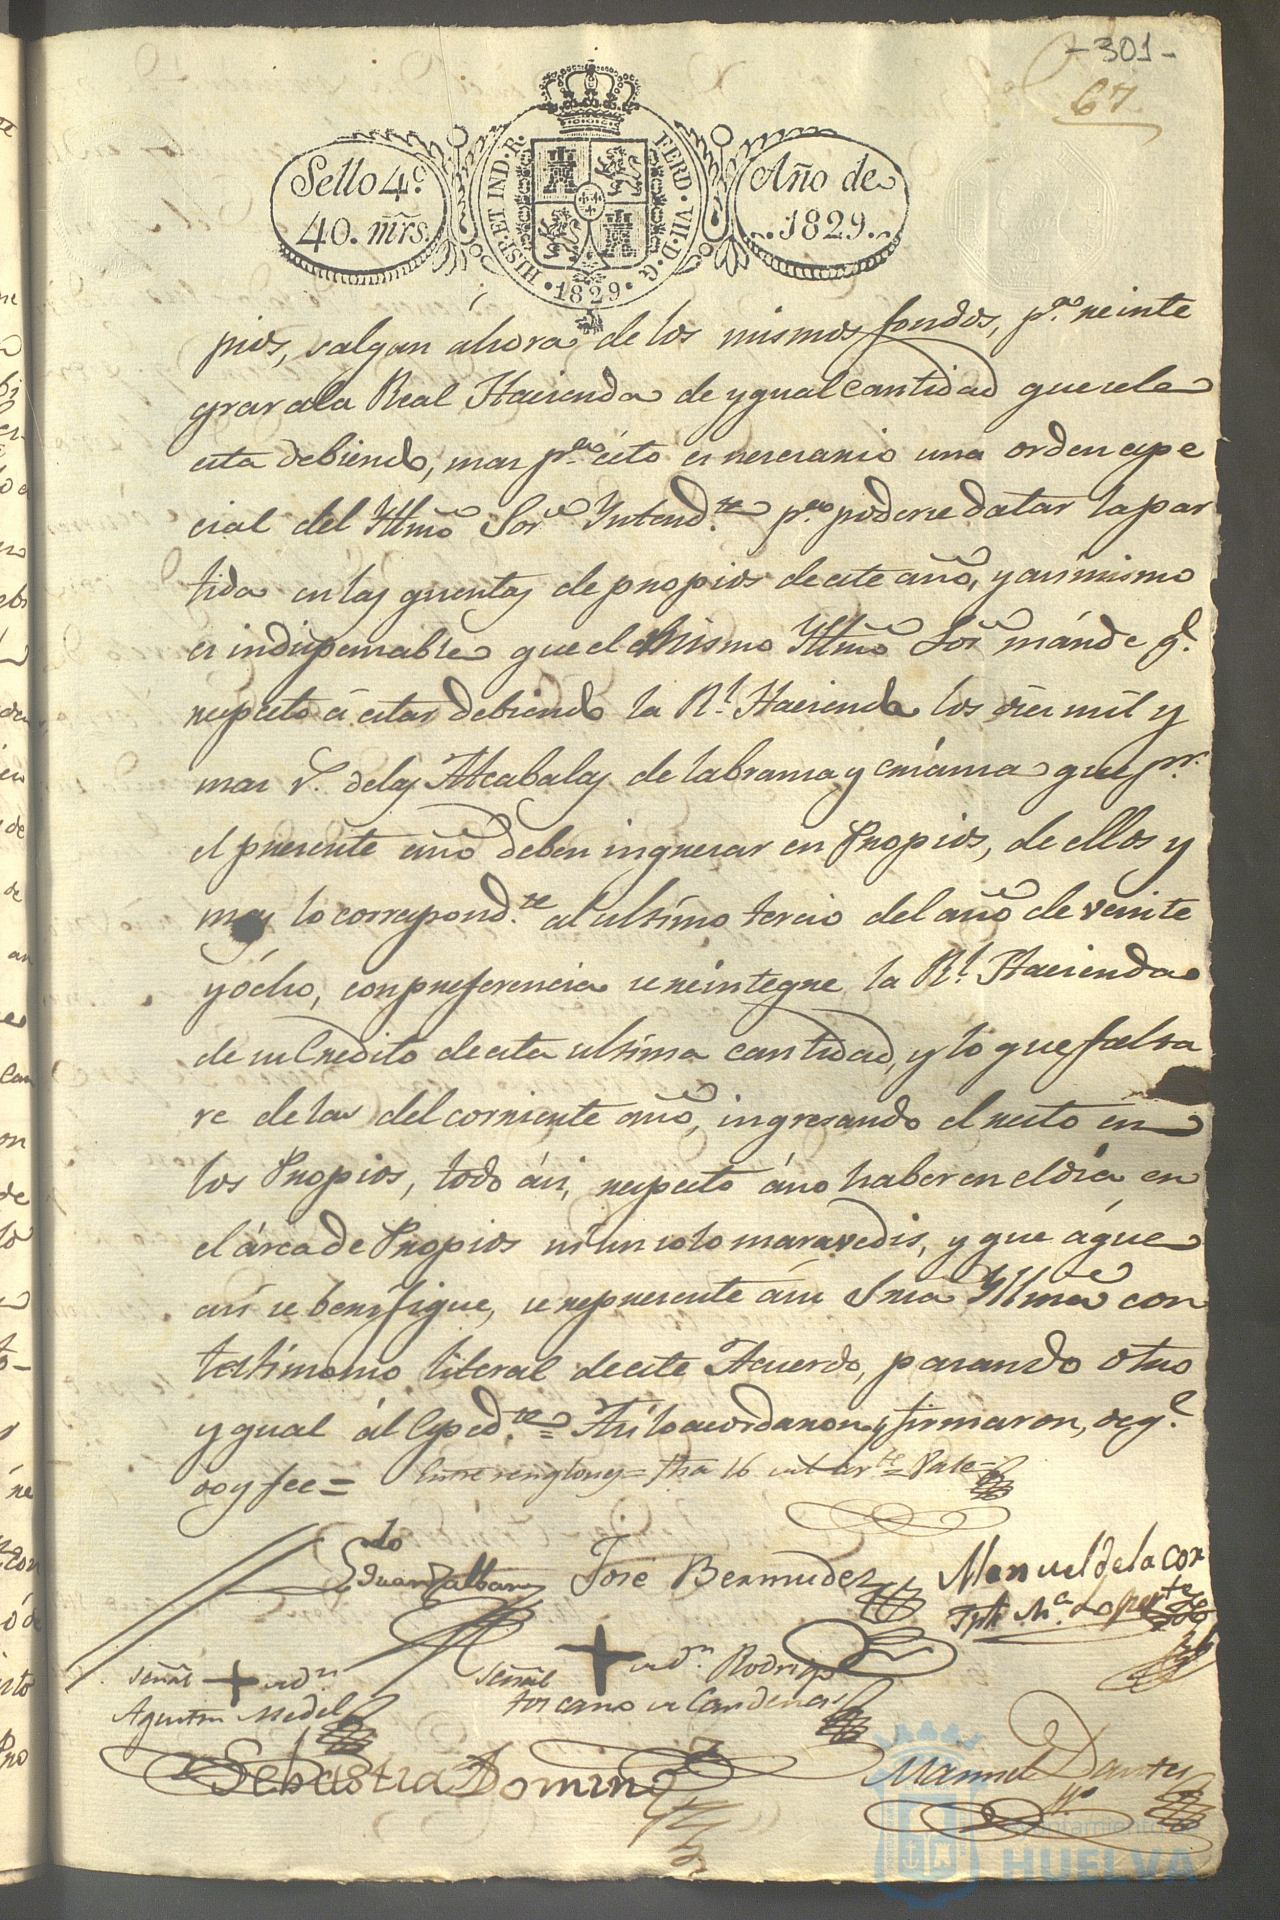 -301-
67
Sello 4º.
40. mrs.
HISP. ET IND. R.
FERD. VII. D. G.
1829
Año de
1829.
pios, salgan áhora de los mismos fondos, pª. reinte
grar ala Real Hacienda de ygual cantidad que sele
esta debiendo, mas pª. ésto es nesesario una orden espe
cial del Yllmô Sor. Yntendte. pª. poderse datar la par
tida en las quentas de propios de este año, y asimismo
es indispensable que el mismo Yllmô Sor. mánde q.
respecto á estar debiendo la Rl. Hacienda los diez mil y
mas r. delas Alcabalas de labranza y criánza que pr.
el presente año deben ingresar en Propios, de ellos y
mas lo correspondte. al ultimo tercio del año de veinte
y ócho, con preferencia se reintegre la Rl. Hacienda
de su Credito de esta ultima cantidad, y lo que falta
re de las del corriente año, ingresando el resto en
los Propios, todo ási, respecto áno haber en el dia en
el árca de Propios ni un solo maravedis, y que á que
así se berifique, se represente ási Sría Yllmâ con
testimonio literal de este Acuerdo, pasando otro
ygual ál Espedte. = Así lo acordaron y firmaron, de q.
doy fee = Entre renglones = fha 16
Eduardo Jose Bermudez Manuel de la Cor
te
señal + de dn. señal + de dn. Rodrigo
Agustin Medel toscano de Cardenas
Sebastia Domin Manuel
Ayuntamiento de
HUELVA